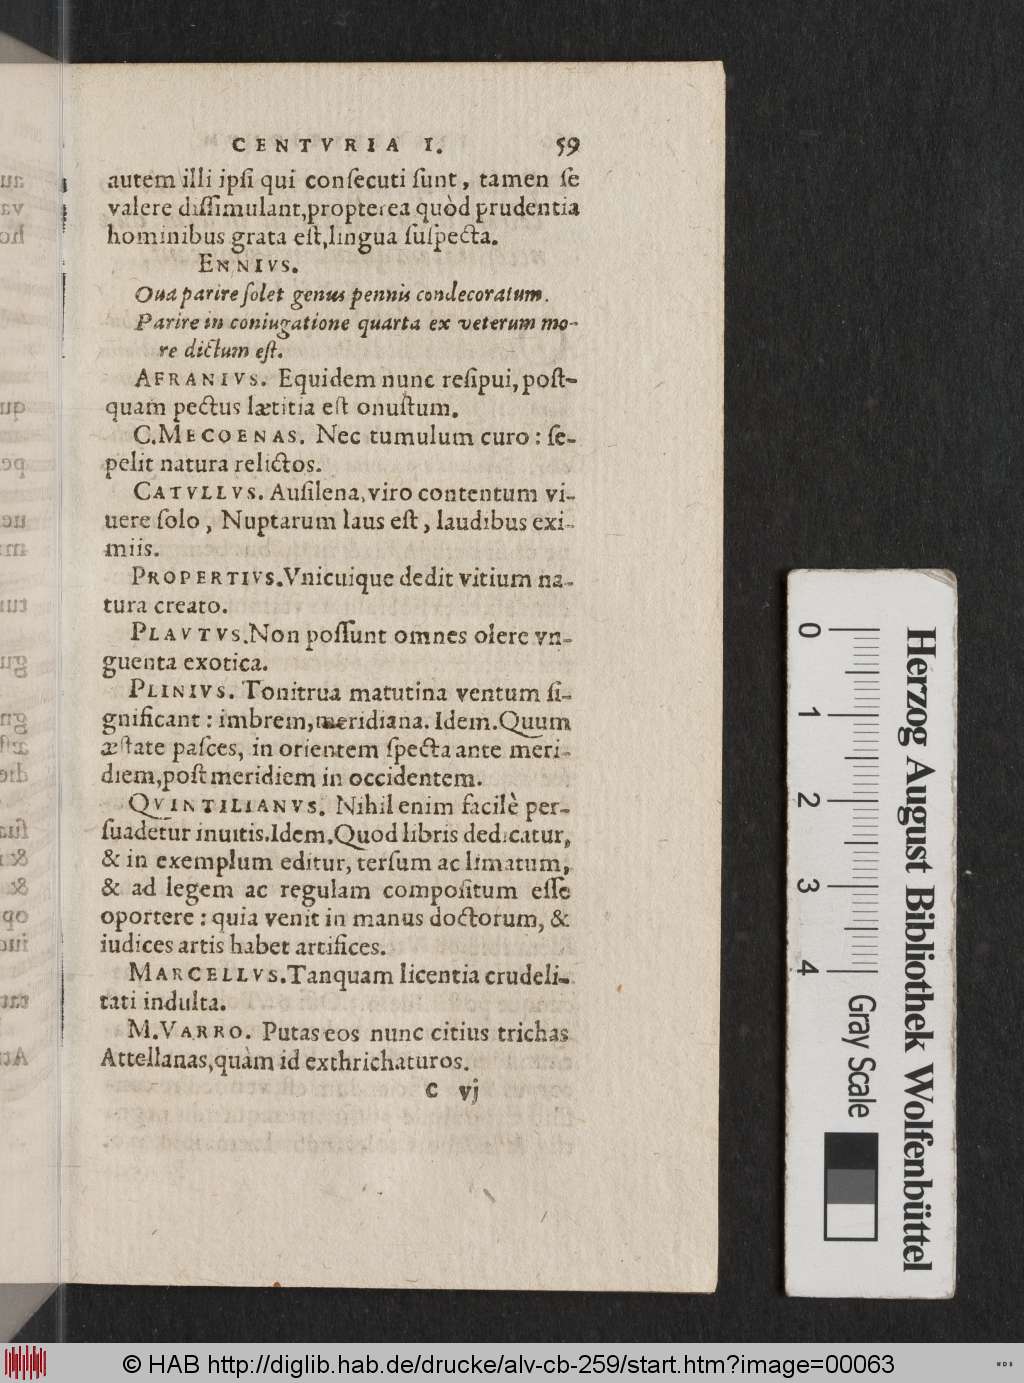 CENTVRIA I. 59
autem illi ipſi qui conſecuti ſunt, tamen ſe
valere diſſimulant,propterea quòd prudentia
hominibus grata eſt,lingua ſuſpecta.
ENNIVS.
Oua parire ſolet genus pennis condecoratum.
Parire in coniugatione quarta ex veterum mo-
re dictum eſt.
AFRANIVS. Equidem nunc reſipui, poſt-
quam pectus lætitia eſt onuſtum.
C.MECOENAS. Nec tumulum curo: ſe-
pelit natura relictos.
CATVLLVS. Auſilena, viro contentum vi-
uere ſolo, Nuptarum laus eſt, laudibus exi-
miis.
PROPERTIVS.Vnicuique dedit vitium na-
tura creato.
PLAVTVS.Non poſſunt omnes olere vn-
guenta exotica.
PLINIVS. Tonitrua matutina ventum ſi-
gnificant: imbrem, meridiana. Idem.Quum
æſtate paſces, in orientem ſpecta ante meri-
diem,poſt meridiem in occidentem.
QVINTILIANVS. Nihil enim facilè per-
ſuadetur inuitis.Idem.Quod libris dedicatur,
& in exemplum editur, terſum ac limatum,
& ad legem ac regulam compoſitum eſſe
oportere: quia venit in manus doctorum, &
iudices artis habet artifices.
MARCELLVS.Tanquam licentia crudeli-
tati indulta.
M.VARRO. Putas eos nunc citius trichas
Attellanas,quàm id exthrichaturos.
C vj
0 1 2 3 4 Gray Scale
Herzog August Bibliothek Wolfenbüttel
© HAB http://diglib.hab.de/drucke/alv-cb-259/start.htm?image=00063